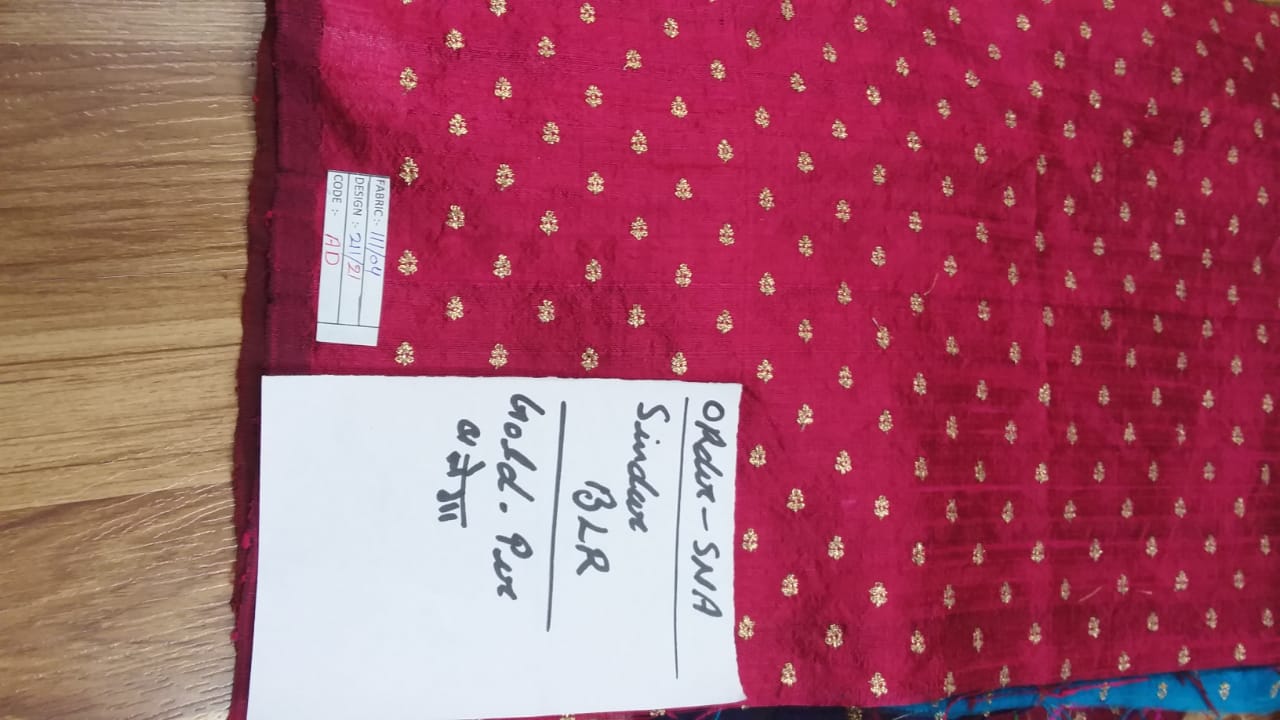 FABRIC:- 11/04
DESIGN :- 211/21
CODE :- AD
ORder - SNA
Sindur
BLR
Gold. Pur